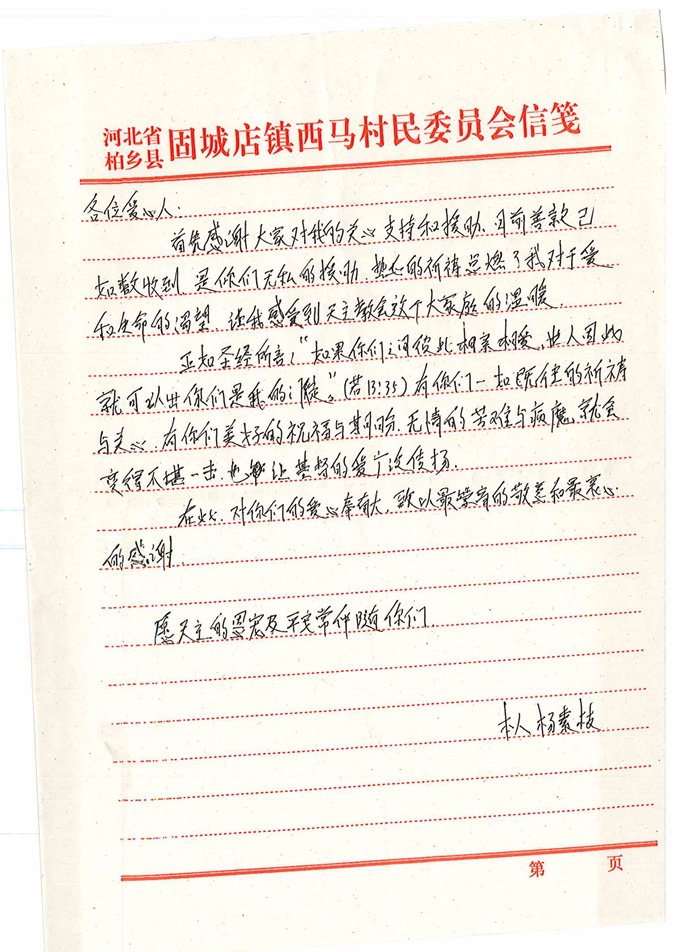 河北省
柏乡县 固城店镇西马村民委员会信笺
各位爱心人:
首先感谢大家对我的关心支持和援助、目前善款已
如数收到 是你们无私的援助 热心的祈祷点燃了我对于爱
和生命的渴望、让我感受到天主教会这个大家庭的温暖、
正如圣经所言:“如果你们之间彼此相亲相爱、世人因此
就可以 你们是我的门徒。”(若13:35)有你们一如既往的祈祷
与关心、有你们美好的祝福与期盼、无情的苦难与病魔就会
变得不堪一击、也能让基督的爱广泛传扬、
在此、对你们的爱心奉献、致以最崇高的敬意和最衷心
的感谢、
愿天主的恩宠及平安常伴随你们
本人 杨素枝
第 页